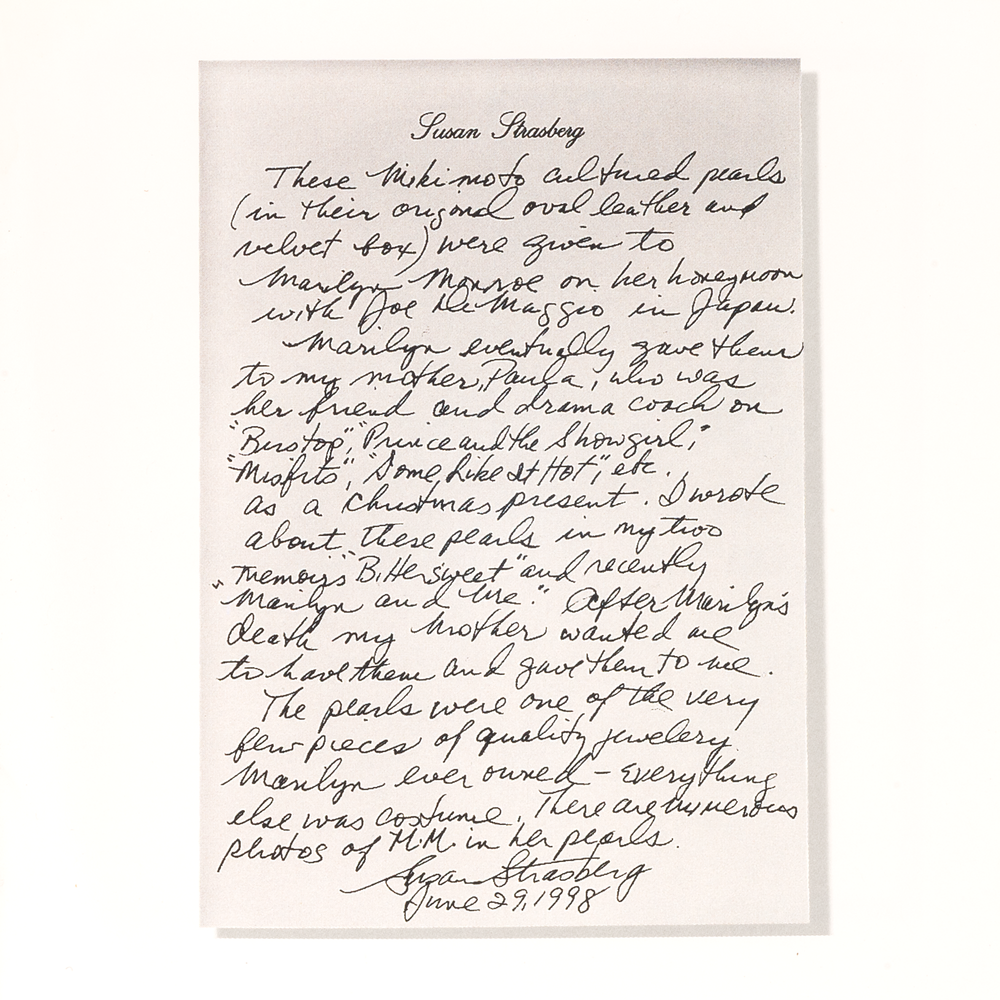 Susan Strasberg
These Mikimoto cultured pearls
(in their original oval leather and
velvet box) were given to
Marilyn Monroe on her honeymoon
with Joe DiMaggio in Japan.
Marilyn eventually gave them
to my mother, Paula, who was
her friend and drama coach on
"Bus stop", "Prince and the Showgirl,"
"Misfits", "Some Like It Hot", etc.
as a Christmas present. I wrote
about these pearls in my two
memoirs "Bittersweet" and recently
"Marilyn and Me." After Marilyn's
death my Mother wanted me
to have them and gave them to me.
The pearls were one of the very
few pieces of quality jewelery
Marilyn ever owned – everything
else was costume. There are numerous
photos of M.M. in her pearls.
Susan Strasberg
June 29, 1998